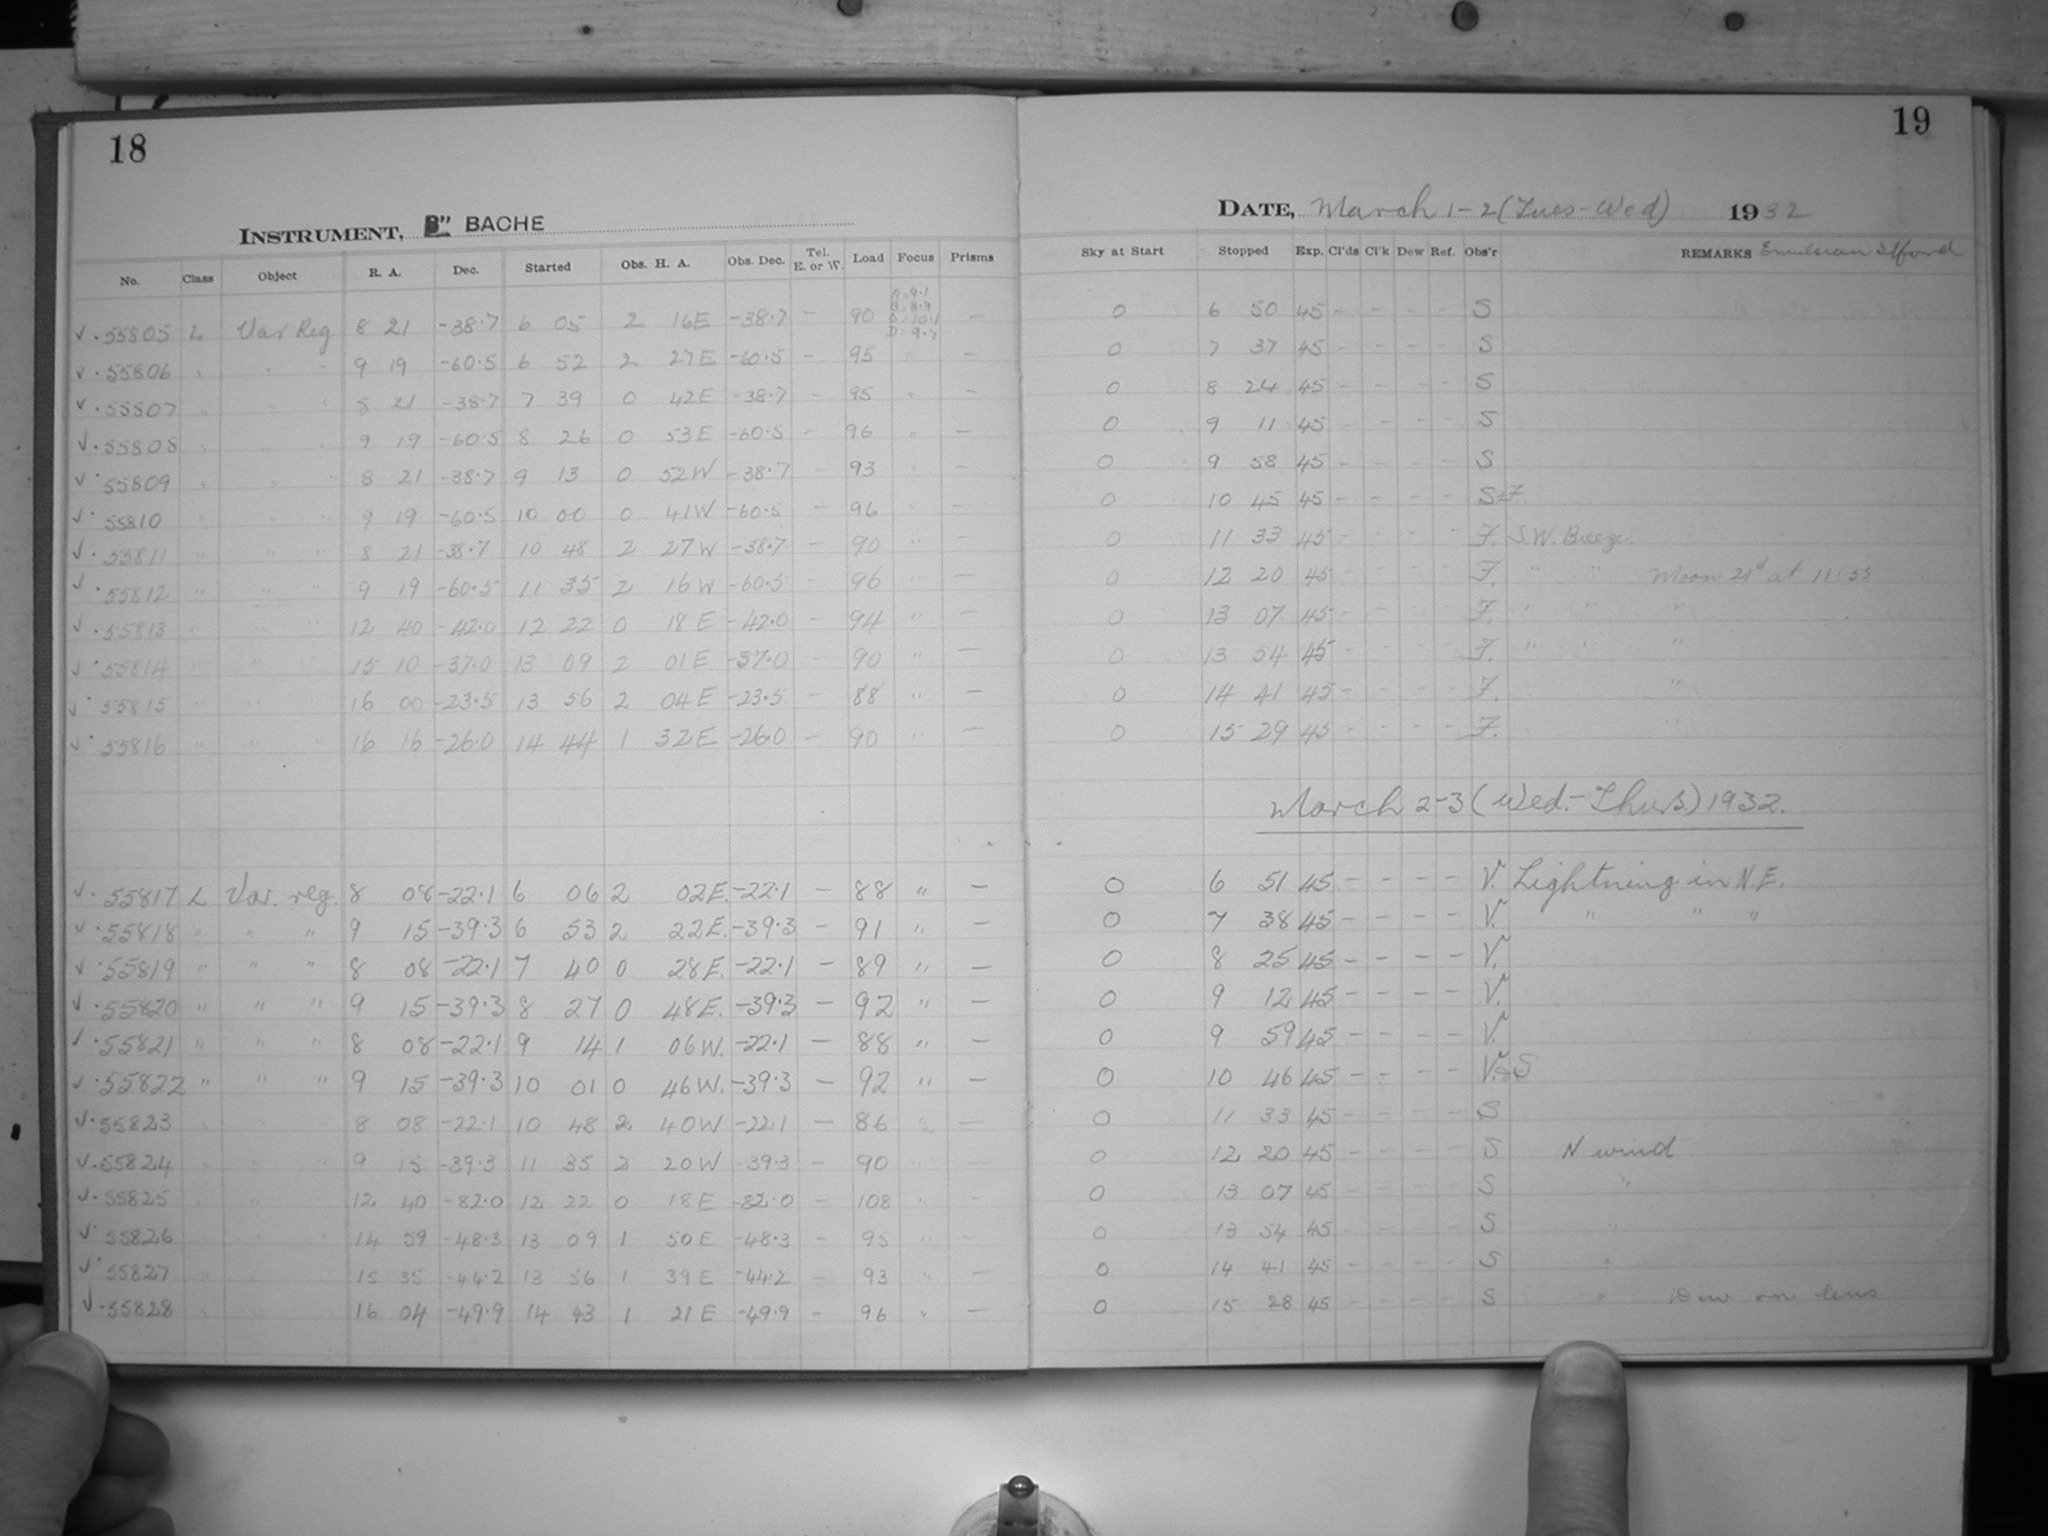 18
INSTRUMENT, B" BACHE
No. Class Object R. A. Dec. Started Obs. H. A. Obs. Dec. Tel. E. or W. Load Focus Prisms
A=9.1
B=8.9
C=10.1
D=9.7
√ · 55805 L Var Reg 8 21 -38.7 6 05 2 16E -38.7 - 90 -
√ · 55806 " " " 9 19 -60.5 6 52 2 27E -60.5 - 95 " -
√ · 55807 " " " 8 21 -38.7 7 39 0 42E -38.7 - 95 " -
√ · 55808 " " " 9 19 -60.5 8 26 0 53E -60.5 - 96 " -
√ · 55809 " " " 8 21 -38.7 9 13 0 52W -38.7 - 93 " -
√ · 55810 " " " 9 19 -60.5 10 00 0 41W -60.5 - 96 " -
√ · 55811 " " " 8 21 -38.7 10 48 2 27W -38.7 - 90 " -
√ · 55812 " " " 9 19 -60.5 11 35 2 16W -60.5 - 96 " -
√ · 55813 " " " 12 40 -42.0 12 22 0 18E -42.0 - 94 " -
√ · 55814 " " " 15 10 -37.0 13 09 2 01E -37.0 - 90 " -
√ · 55815 " " " 16 00 -23.5 13 56 2 04E -23.5 - 88 " -
√ · 55816 " " " 16 16 -26.0 14 44 1 32E -26.0 - 90 " -
√ · 55817 L Var. reg. 8 08 -22.1 6 06 2 02E. -22.1 - 88 " -
√ · 55818 " " " 9 15 -39.3 6 53 2 22E. -39.3 - 91 " -
√ · 55819 " " " 8 08 -22.1 7 40 0 28E. -22.1 - 89 " -
√ · 55820 " " " 9 15 -39.3 8 27 0 48E. -39.3 - 92 " -
√ · 55821 " " " 8 08 -22.1 9 14 1 06W. -22.1 - 88 " -
√ · 55822 " " " 9 15 -39.3 10 01 0 46W. -39.3 - 92 " -
√ · 55823 " " " 8 08 -22.1 10 48 2 40W -22.1 - 86 " -
√ · 55824 " " " 9 15 -39.3 11 35 2 20W -39.3 - 90 " -
√ · 55825 " " " 12 40 -82.0 12 22 0 18E -82.0 - 108 " -
√ · 55826 " " " 14 59 -48.3 13 09 1 50E -48.3 - 95 " -
√ · 55827 " " " 15 35 -44.2 13 56 1 39E -44.2 - 93 " -
√ · 55828 " " " 16 04 -49.9 14 43 1 21E -49.9 - 96 " -
19
DATE, March 1-2 (Tues-Wed) 1932
Sky at Start Stopped Exp. Cl'ds Cl'k Dew Ref. Obs'r REMARKS Emulsion Ilford
0 6 50 45 - - - - S
0 7 37 45 - - - - S
0 8 24 45 - - - - S
0 9 11 45 - - - - S
0 9 58 45 - - - - S
0 10 45 45 - - - - S-F
0 11 33 45 - - - - F. S.W. Breeze.
0 12 20 45 - - - - F. " " Moon 21d at 11:55
0 13 07 45 - - - - F. " " "
0 13 54 45 - - - - F. " " "
0 14 41 45 - - - - F. "
0 15 29 45 - - - - F.
March 2-3 (Wed.-Thurs.) 1932.
0 6 51 45 - - - - V. Lightning in N.E.
0 7 38 45 - - - - V. " " "
0 8 25 45 - - - - V.
0 9 12 45 - - - - V.
0 9 59 45 - - - - V.
0 10 46 45 - - - - V.-S
0 11 33 45 - - - - S
0 12 20 45 - - - - S N wind
0 13 07 45 - - - - S "
0 13 54 45 - - - - S "
0 14 41 45 - - - - S "
0 15 28 45 - - - - S " Dew on lens